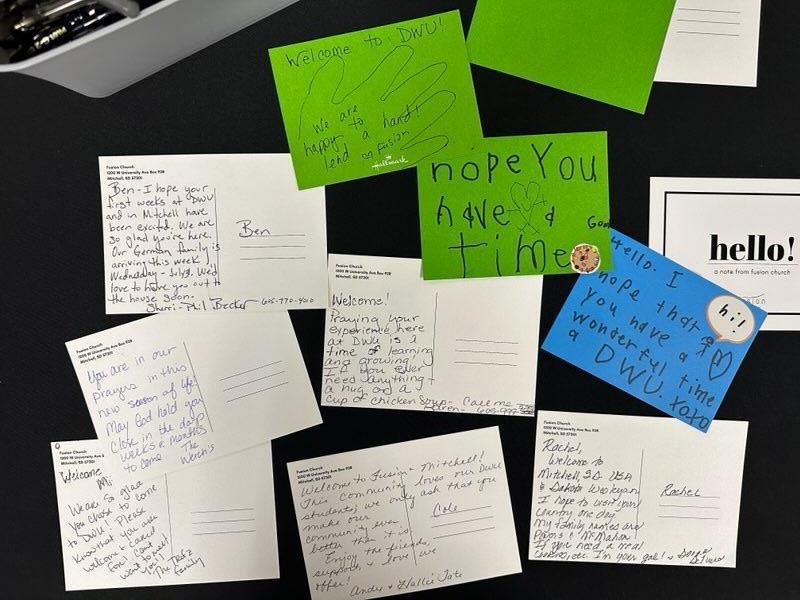 Welcome to DWU!
We are
happy to
lend a hand!
Fusion
Hallmark
hope You
have a Good
time
hello!
a note from fusion church
fusion
Hello. I
hope that
you have a
wonderful time
a DWU. xoxo
hi!
Fusion Church
1200 W University Ave Box 928
Mitchell, SD 57301
Ben - I hope your
first weeks at DWU
and in Mitchell have
been excited. We are
so glad you're here.
Our German family is
arriving this week
Wednesday - July 9. We'd
love to have you out to
the house soon.
Sherri + Phil Becker 605-770-
Ben
Fusion Church
1200 W University Ave Box 928
Mitchell, SD 57301
Welcome!
Praying your
experience here
at DWU is a
time of learning
and growing!
If you ever
need anything -
a hug or a
cup of chicken soup - Call me
Karen - 605-999-
Fusion Church
1200 W University Ave Box 928
Mitchell, SD 57301
You are in our
prayers in this
new season of life!
May God hold you
close in the days
weeks & months
to come The
Fusion Church
1200 W University Ave Box 928
Mitchell, SD 57301
Welcome
We are so glad
you chose to come
to DWU! Please
know that you are
welcome & cared
for! Can't
wait to meet
you!
The
Family
Fusion Church
1200 W University Ave Box 928
Mitchell, SD 57301
Welcome to Fusion & Mitchell!
This community loves our DWU
students; we only ask that you
make our
community even
better than it is.
Enjoy the friends,
support & love we
offer!
Andy & Hallie Tate
Cole
Fusion Church
1200 W University Ave Box 928
Mitchell, SD 57301
Rachel,
Welcome to
Mitchell SD USA
& Dakota Wesleyan
I hope to visit your
country one day.
My family names are
& McMahon
If you need a meal,
cookies, etc. I'm your gal!
Rachel